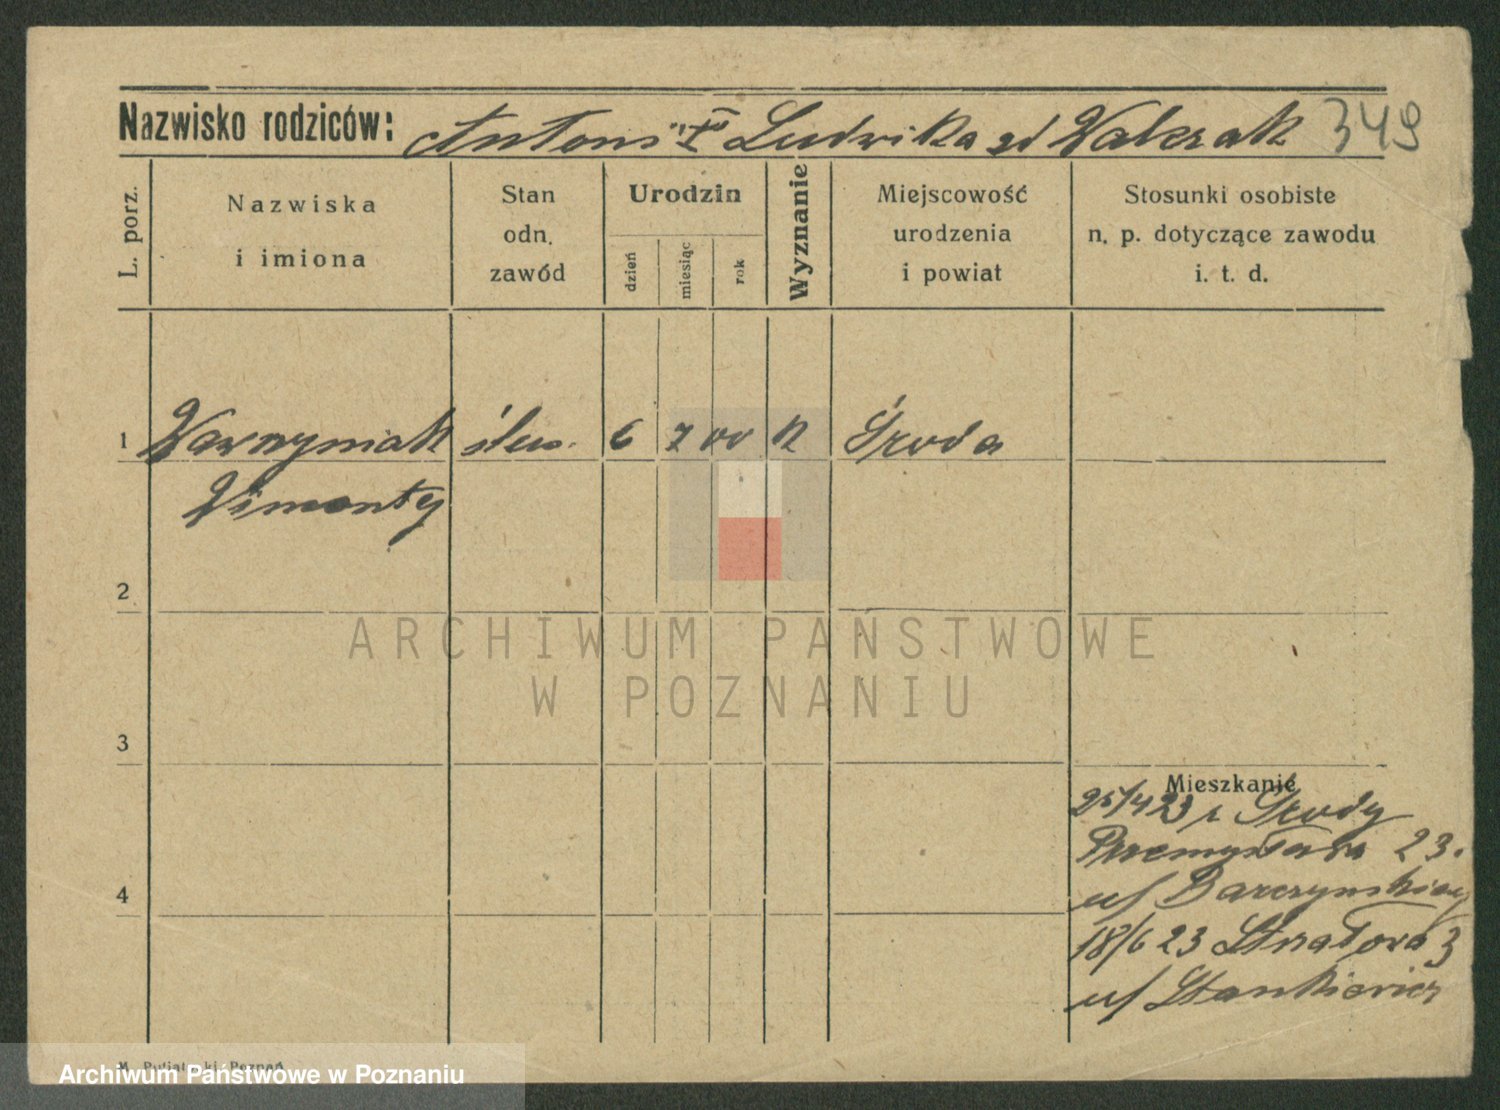 Nazwisko rodziców: Antoni i Ludwika zd Walczak 349
L. porz.
Nazwiska
i imiona
Stan
odn.
zawód
Urodzin
dzień
miesiąc
rok
Wyznanie
Miejscowość
urodzenia
i powiat
Stosunki osobiste
n. p. dotyczące zawodu
i. t. d.
1 Wawrzyniak ślus. 6 7 00 k Środa
Wincenty
2
ARCHIWUM PAŃSTWOWE
W POZNANIU
3
Mieszkanie
25/4 23 z Środy
Przemysłowa 23.
u/ Barczyńskiej
4
18/6 23 Strzałowa 3
u/ Stankiewicz
Poznań
Archiwum Państwowe w Poznaniu